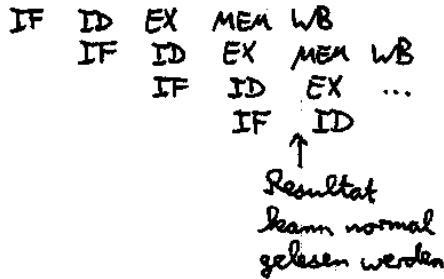 IF ID EX MEM WB
IF ID EX MEM WB
IF ID EX ...
IF ID
Resultat
kann normal
gelesen werden